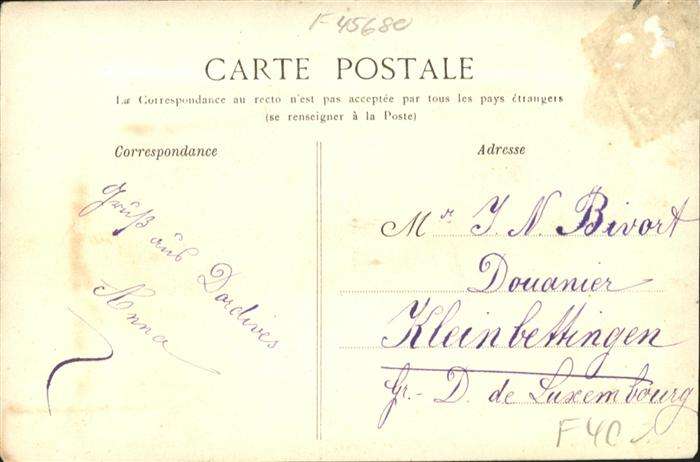 F 45680
CARTE POSTALE
La Correspondance au recto n'est pas acceptée par tous les pays étrangers
(se renseigner à la Poste)
Correspondance
Adresse
Gruß aus Dordives
Anna
Mr J. N. Bivort
Douanier
Kleinbettingen
Gr.- D. de Luxembourg
F 40